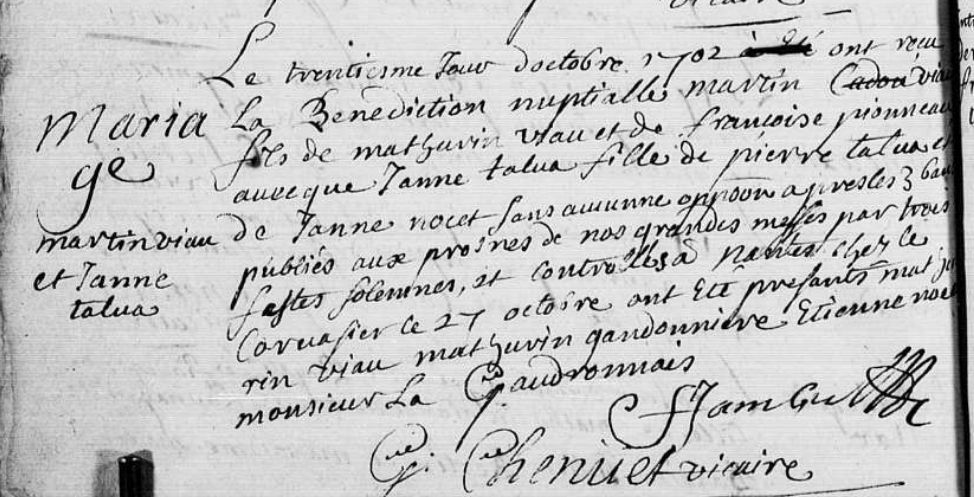 vicaire
Le trentiesme Jour doctobre 1702 a été ont reçu
Maria
ge
martin viau
et Janne
talua
La Benediction nuptialle martin Cadou viau
fils de mathurin viau et de françoise pionneau
avecque Janne talua fille de pierre talua et
de Janne nocet sans aucunne oppoon apres les 3 ban
publiés aux prosnes de nos grandes messes par trois
festes solemnes, et controllés a nantes chez le
Corvasier le 27 octobre ont eté presants mathu
rin viau mathurin gandonniere Etienne nocet
monsieur La Gaudronnais
Chenuet vicaire